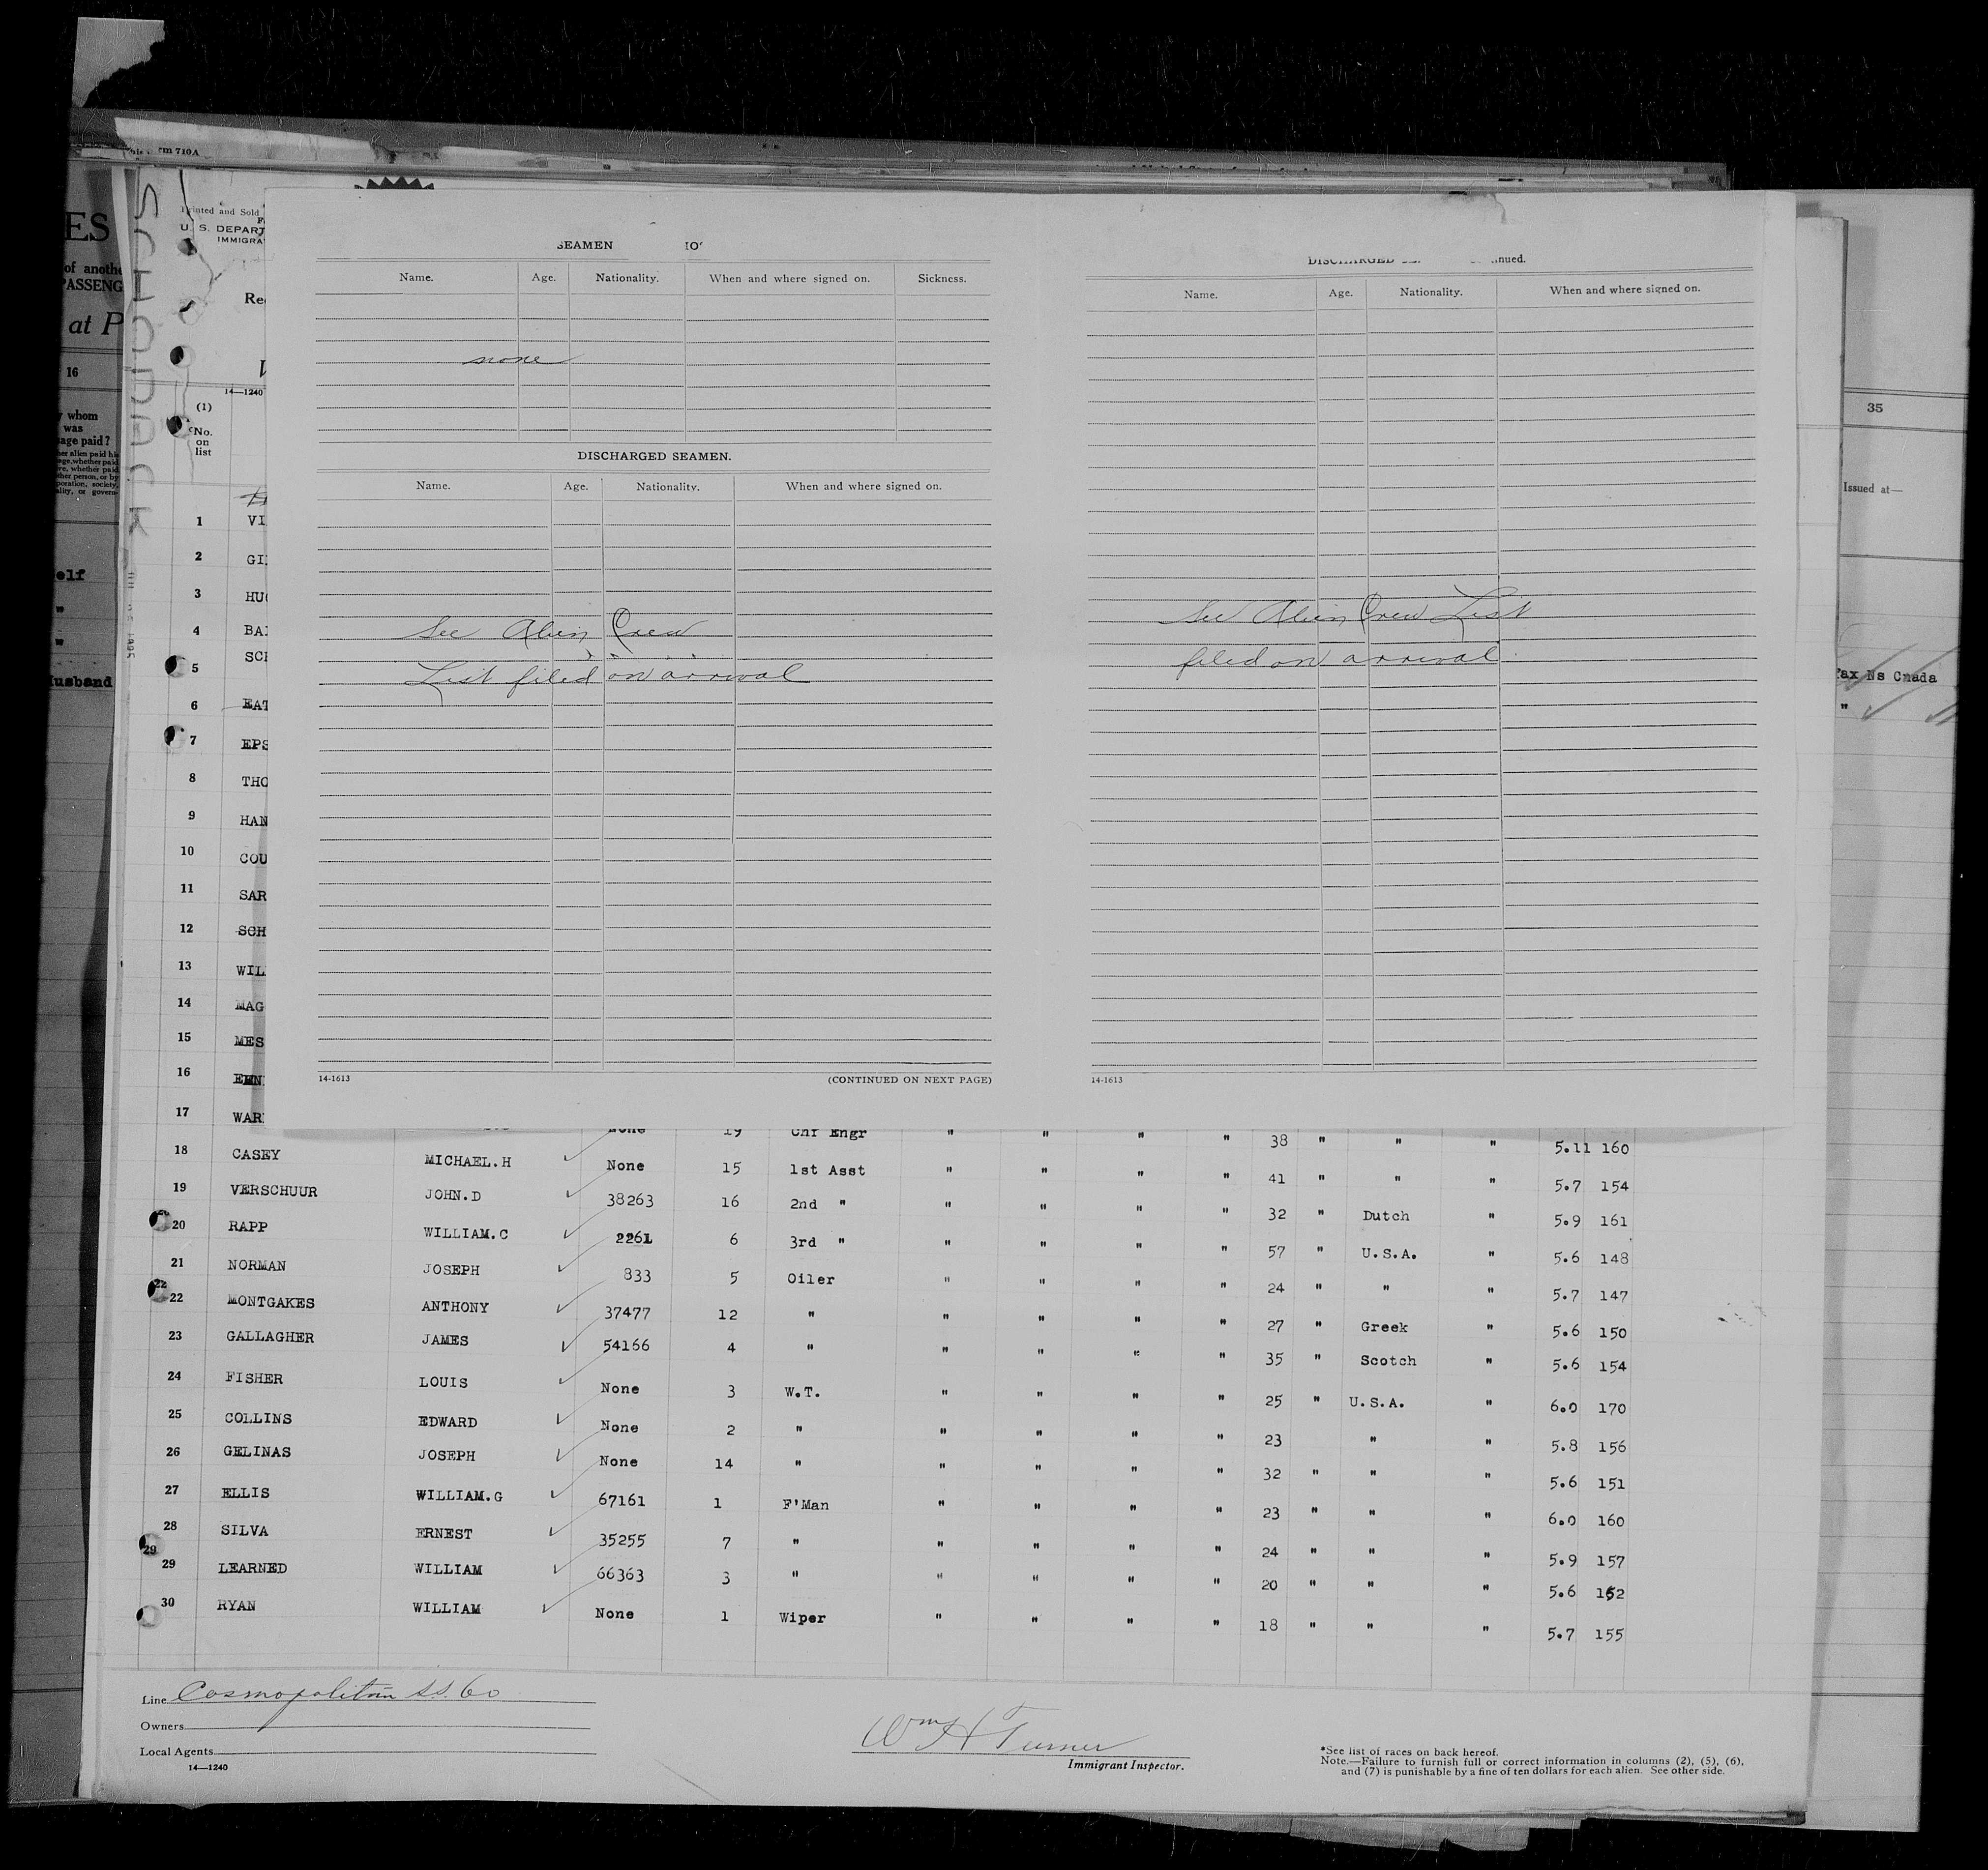 rm 710A
ES
of anothe
PASSENG
at P
16
y whom
was
sage paid?
elf
"
"
Husband
SCHOODACK
Printed and Sold
U. S. DEPART
IMMIGRA
Re
14—1240
(1)
No.
on
list
SEAMEN
Name. Age. Nationality. When and where signed on. Sickness.
none
DISCHARGED SEAMEN.
Name. Age. Nationality. When and where signed on.
See Alien Crew
List filed on arrival
14-1613 (CONTINUED ON NEXT PAGE)
nued.
Name. Age. Nationality. When and where signed on.
See Alien Crew List
filed on arrival
14-1613
35
Issued at—
fax Ns Cnada
"
1 VI
2 GI
3 HU
4 BA
5 SC
6 EAT
7 EPS
8 THO
9 HAN
10 COU
11 SAR
12 SCH
13 WIL
14 MAG
15 MES
16
17 WAR None 19 Chf Engr " " " " 38 " " " 5.11 160
18 CASEY MICHAEL.H None 15 1st Asst " " " " 41 " " 5.7 154
19 VERSCHUUR JOHN.D 38263 16 2nd " " " " " 32 " Dutch " 5.9 161
20 RAPP WILLIAM.C 2261 6 3rd " " " " " 57 " U.S.A. " 5.6 148
21 NORMAN JOSEPH 833 5 Oiler " " " " 24 " " " 5.7 147
22
22 MONTGAKES ANTHONY 37477 12 " " " " " 27 " Greek " 5.6 150
23 GALLAGHER JAMES 54166 4 " " " " " 35 " Scotch " 5.6 154
24 FISHER LOUIS None 3 W.T. " " " " 25 " U.S.A. " 6.0 170
25 COLLINS EDWARD None 2 " " " " " 23 " " 5.8 156
26 GELINAS JOSEPH None 14 " " " " " 32 " " " 5.6 151
27 ELLIS WILLIAM.G 67161 1 F'Man " " " " 23 " " " 6.0 160
28 SILVA ERNEST 35255 7 " " " " " 24 " " " 5.9 157
29
29 LEARNED WILLIAM 66363 3 " " " " " 20 " " " 5.6 152
30 RYAN WILLIAM None 1 Wiper " " " " 18 " " " 5.7 155
Line Cosmopolitan S.S. Co
Owners
Local Agents
14—1240
Wm H Turner
Immigrant Inspector.
*See list of races on back hereof.
Note.—Failure to furnish full or correct information in columns (2), (5), (6),
and (7) is punishable by a fine of ten dollars for each alien. See other side.